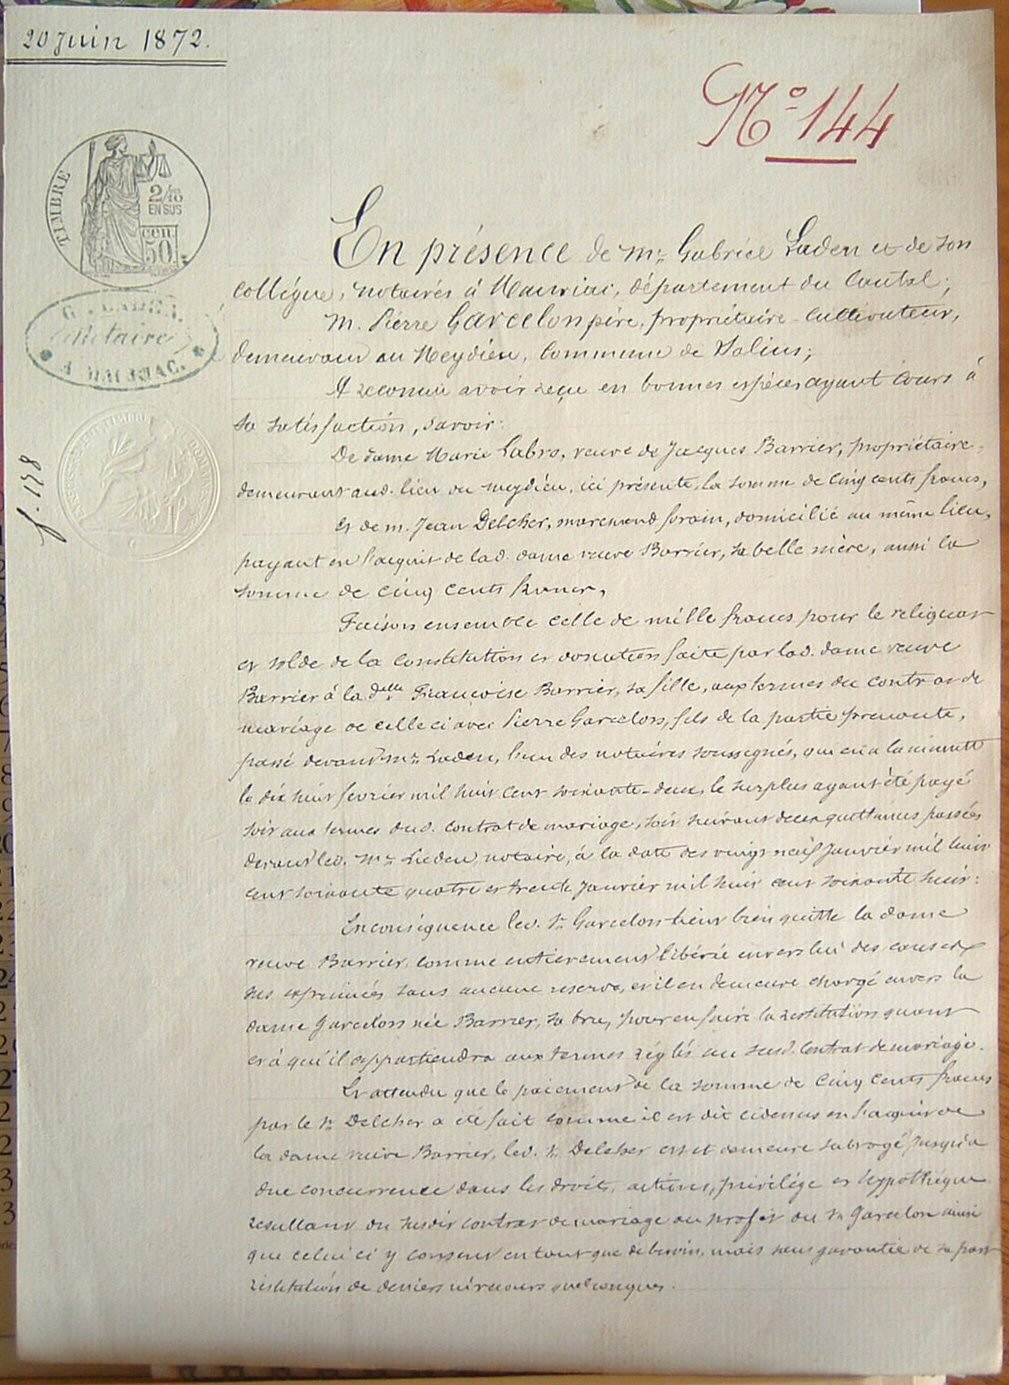 20 Juin 1872.
Nº 144
TIMBRE
2/10
EN SUS
50
Notaire
A MAURIAC.
f. 198
En présence de Mᵉ Gabriel Laden et de son
collégue, notaires à Mauriac, département du Cantal;
M. Pierre Garcelon père, propriétaire-cultivateur,
demeurant au Meydieu, commune de Salins;
A reconnu avoir reçu en bonnes espèces ayant cours à
sa satisfaction, savoir:
De dame Marie Labro, veuve de Jacques Barrier, propriétaire,
demeurant aud. lieu du Meydieu, ici présente, la somme de cinq cents francs,
Et de M. Jean Delcher, marchand forain, domicilié au même lieu,
payant en l'acquit de lad. dame veuve Barrier, sa belle mère, aussi la
somme de cinq cents francs,
Faisons ensemble celle de mille francs pour le reliquat
et solde de la constitution et donation faite par lad. dame veuve
Barrier à la dᵉˡˡᵉ Françoise Barrier, sa fille, aux termes du contrat de
mariage de celle ci avec Pierre Garcelon, fils de la partie prenante,
passé devant Mᵉ Laden, l'un des notaires soussignés, qui en a la minute
le dix huit fevrier mil huit cent soixante-deux, le surplus ayant été payé
soit aux termes dud. contrat de mariage, soit suivant deux quittances passées
devant led. Mᵉ Laden, notaire, à la date des vingt neuf Janvier mil huit
cent soixante quatre et trente Janvier mil huit cent soixante huit:
En conséquence led. Sʳ Garcelon tient bien quitte la dame
veuve Barrier comme entièrement libérée envers lui des causes
sus exprimées sans aucune reserve, et il en demeure chargé envers la
dame Garcelon née Barrier, sa bru, pour en faire la restitution quant
et à qui il appartiendra aux termes réglés au susd. contrat de mariage.
Et attendu que le paiement de la somme de cinq cents francs
par le Sʳ Delcher a été fait comme il est dit cidessus en l'acquit de
la dame veuve Barrier, led. Sʳ Delcher est et demeure subrogé jusqu'à
due concurrence dans les droits, actions, privilége et hypothéque
resultant du susdit contrat de mariage au profit du Sʳ Garcelon ainsi
que celui ci y consent en tant que de besoin, mais sans garantie de sa part
restitution de deniers ni recours quelconques.